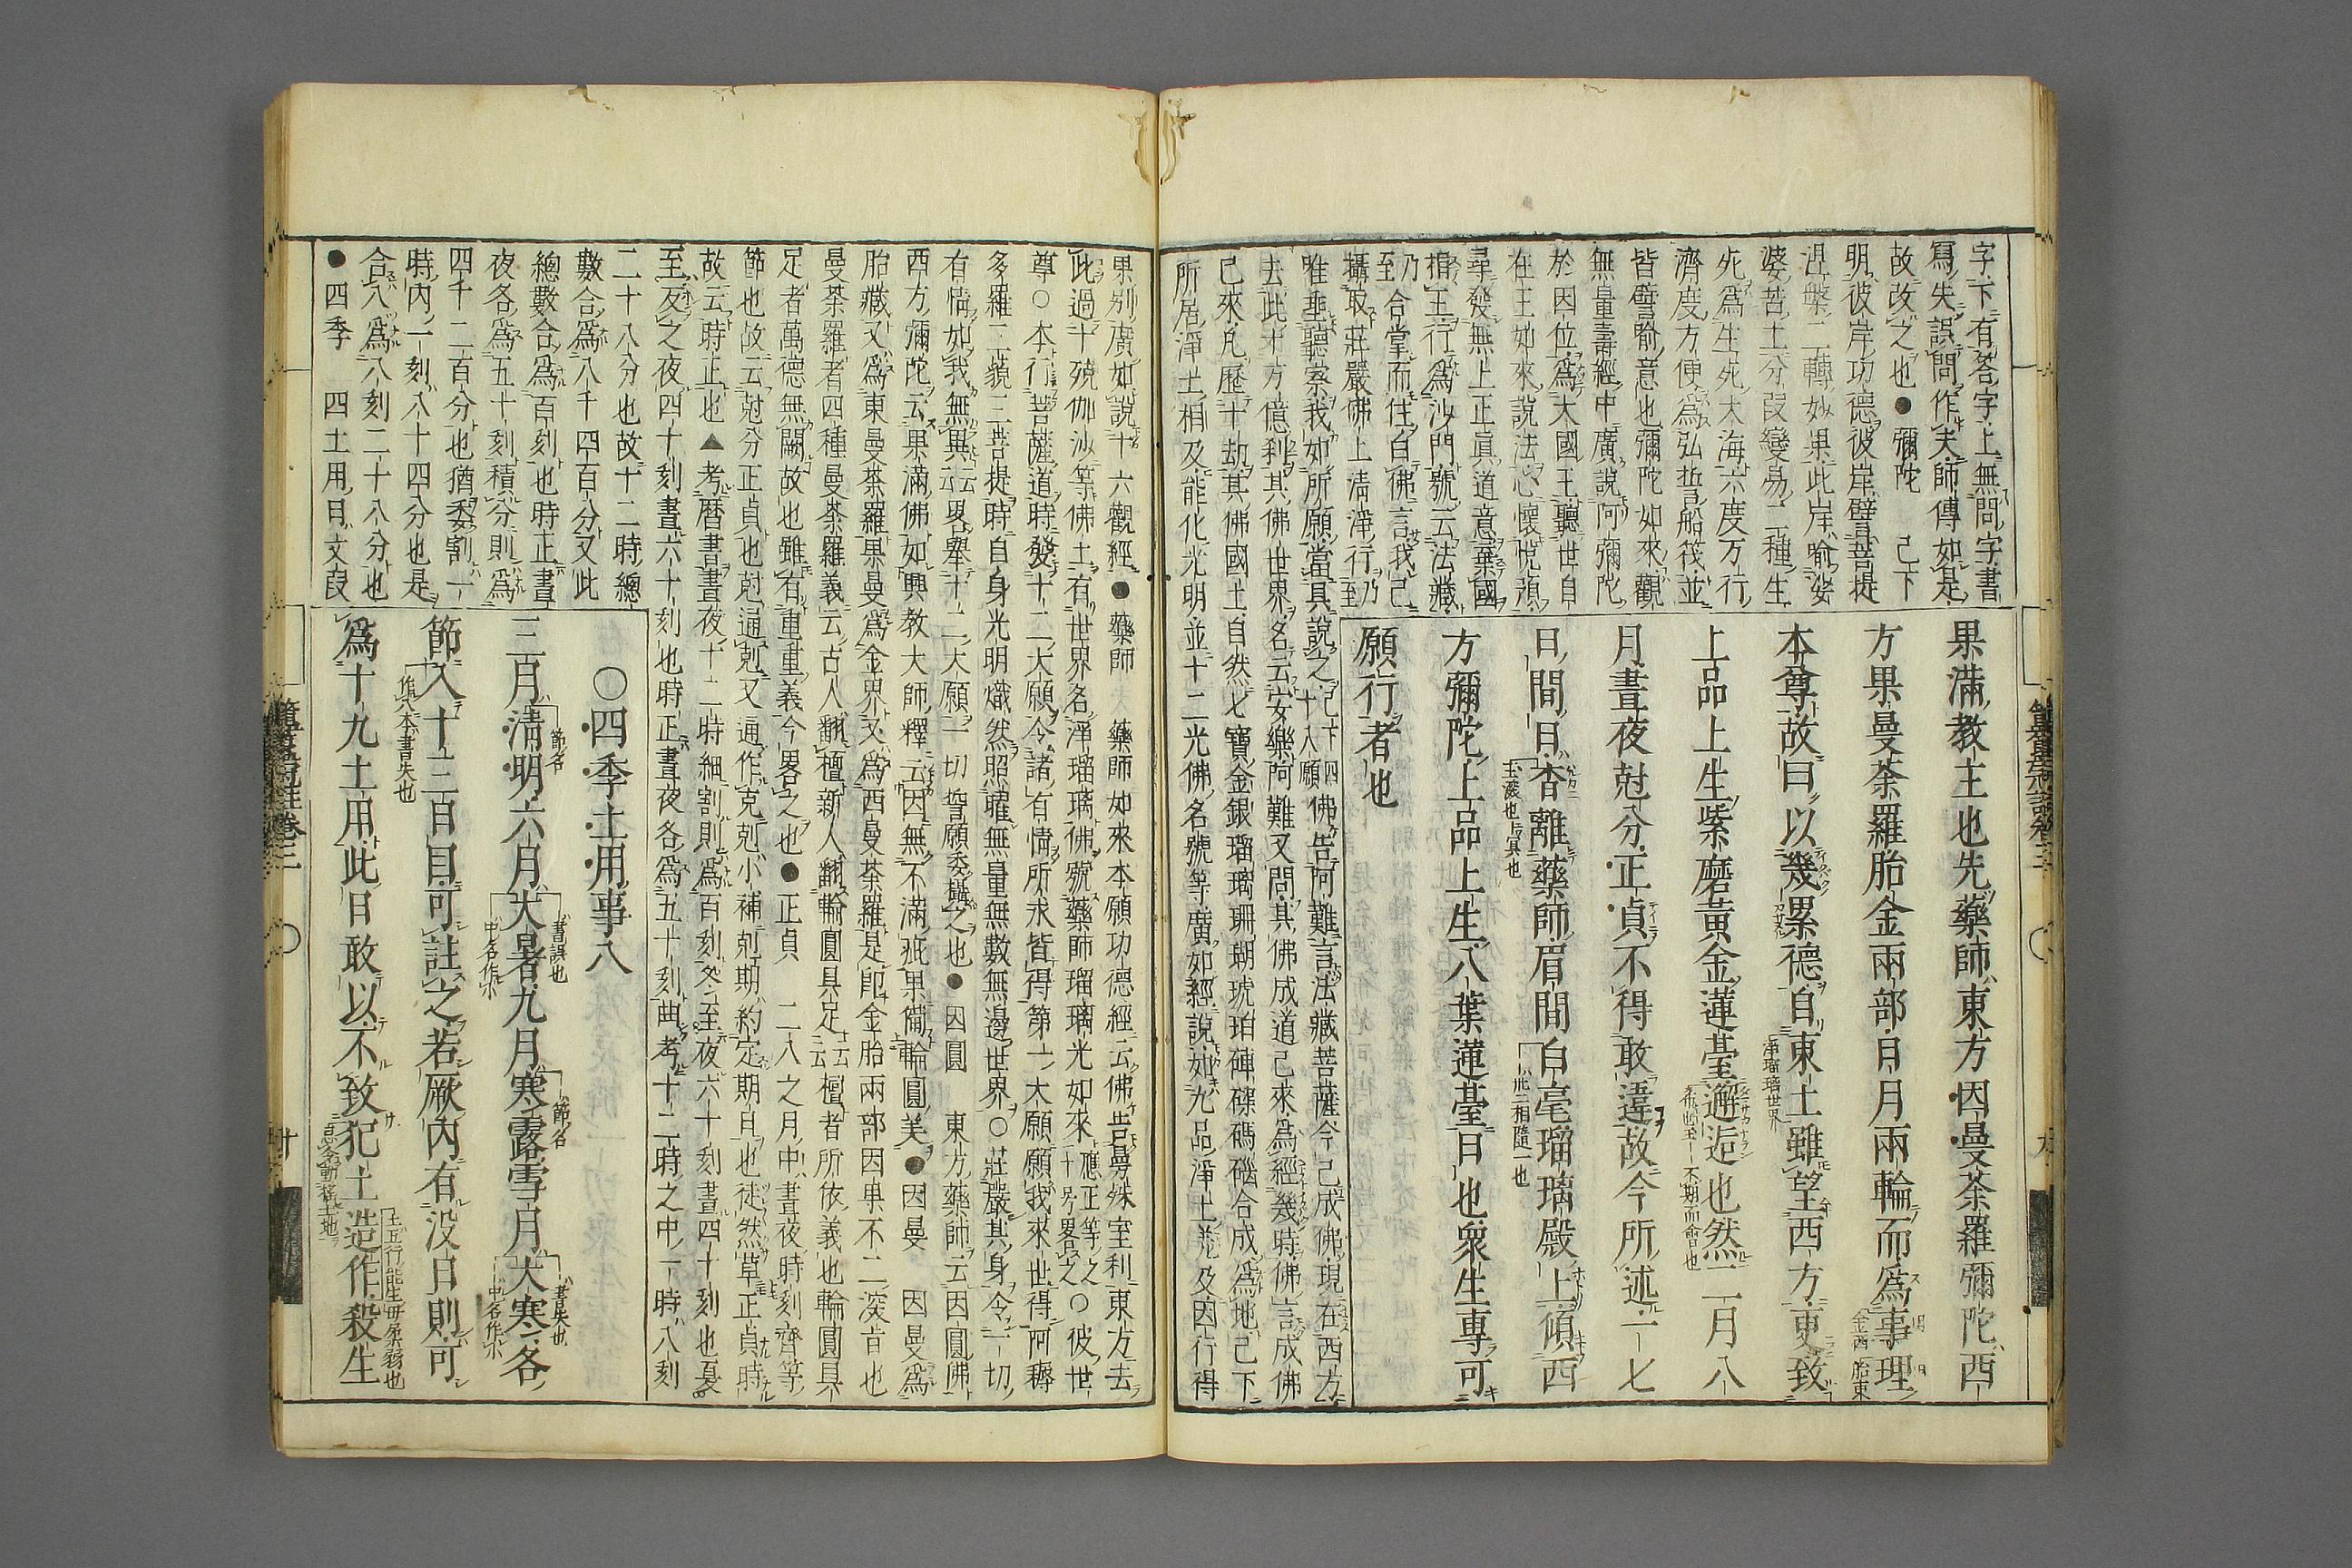 字下有答字上無問字書
寫失誤問作夫師傳如是
故改之也●彌陀 已下
明彼岸功德彼岸譬菩提
涅槃二轉妙果此岸喻娑
婆苦土分段變易二種生
死爲生死大海六度万行
濟度方便爲弘誓船筏並
皆譬喻意也彌陀如來觀
無量壽經中廣說阿彌陀
於因位爲大國王聽世自
在王如來說法心懷悅預
尋發無上正眞道意棄國
捐王行爲沙門號云法藏
乃至合掌而住白佛言我已
攝取莊嚴佛土清淨行乃至
唯垂聽察我如所願當具說之已下四十八願佛告阿難言法藏菩薩今已成佛現在西方
去此十万億刹其佛世界名云安樂阿難又問其佛成道已來爲經幾時佛言成佛
已來凡歷十劫其佛國土自然七寶金銀瑠璃珊瑚琥珀硨磲碼碯合成爲地已下
所居淨土相及能化光明並十二光佛名號等廣如經說如此九品淨土差及因行得
果滿教主也先藥師東方因曼荼羅彌陀西
方果曼荼羅胎金兩部日月兩輪而爲事理
金西胎東
本尊故曰以幾累德自東土雖望西方更致
淨瑠璃世界
上品上生紫磨黃金蓮臺邂逅也然二月八
月晝夜尅分正貞不得敢違故今所述一七
日間日杳離藥師眉間白毫瑠璃殿上傾西
此二相隨一也
方彌陀上品上生八葉蓮臺日也衆生專可
願行者也
果別廣如說十六觀經●藥師 藥師如來本願功德經云佛告曼殊室利東方去
此過十殑伽沙等佛土有世界名淨瑠璃佛號藥師瑠璃光如來應正等之十号畧之○彼世
尊○本行菩薩道時發十二大願令諸有情所求皆得第一大願願我來世得阿耨
多羅三藐三菩提時自身光明熾然照曜無量無數無邊世界○莊嚴其身令一切
有情如我無異云云畧擧十二大願一切誓願委攝之也●因圓 東方藥師云因圓佛
西方彌陀云果滿佛如興教大師釋云因無不滿疵果備輪圓美●因曼 因曼爲
胎藏又爲東曼荼羅果曼爲金界又爲西曼荼羅是卽金胎兩部因果不二深旨也
曼荼羅者四種曼荼羅義云古人翻檀新人翻輪圓具足云云檀者所依義也輪圓具
足者萬德無闕故也雖有重重義今畧之也●正貞 二八之月中晝夜時刻齊等
節也故云尅分正貞也尅通剋又通作克剋小補剋期約定期日也徒然草正貞時
故云時正也▲考曆書晝夜十二時細割則爲百刻冬至夜六十刻晝四十刻也夏
至反之夜四十刻晝六十刻也時正晝夜各爲五十刻曲考十二時之中一時八刻
二十八分也故十二時總
數合爲八千四百八分又此
總數合爲百刻也時正晝
夜各爲五十刻積分則爲
四千二百分也猶委割一
時內一刻八十四分也是
合八爲八刻二十八分也
●四季 四土用日文段
○四季土用事八
三月淸明六月大暑九月寒露雪月大寒各
節名
書誤也
中名作小
節名
書失也
中名作小
節入十三日目可註之若厥內有没日則可
作八本書失也
爲十九土用此日敢以不致犯土造作殺生